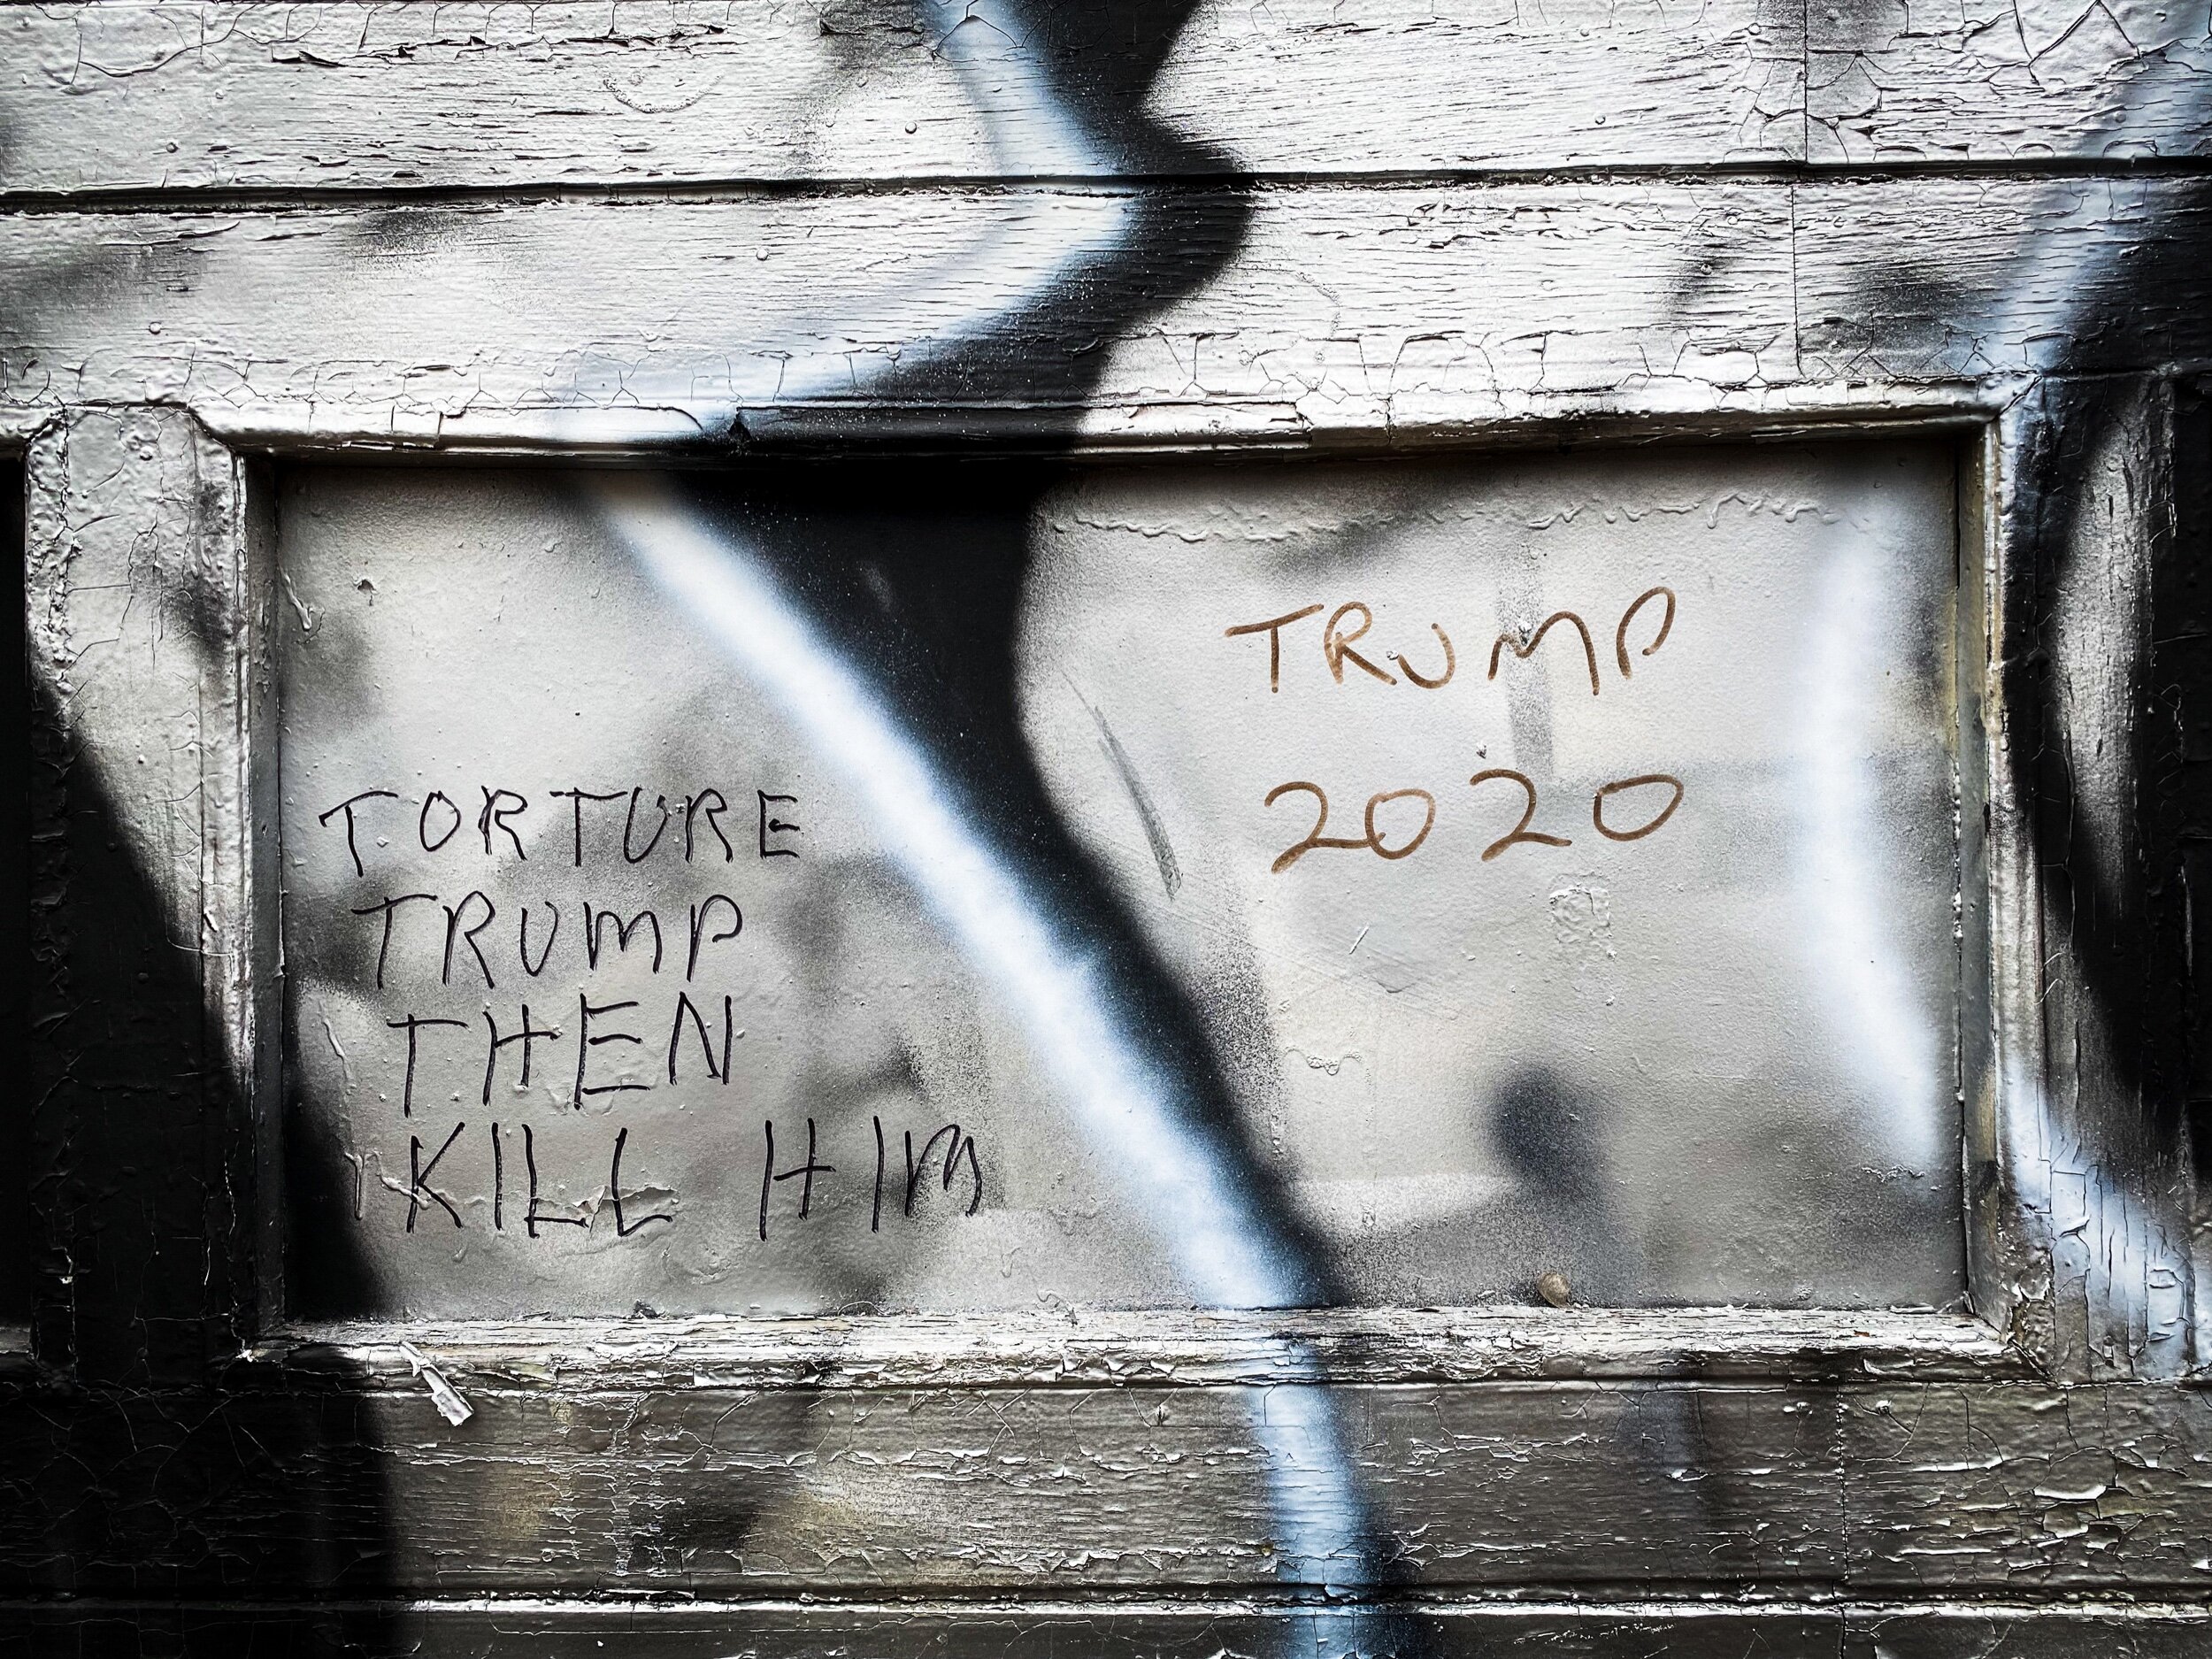 TORTURE
TRUMP
THEN
KILL HIM
TRUMP
2020